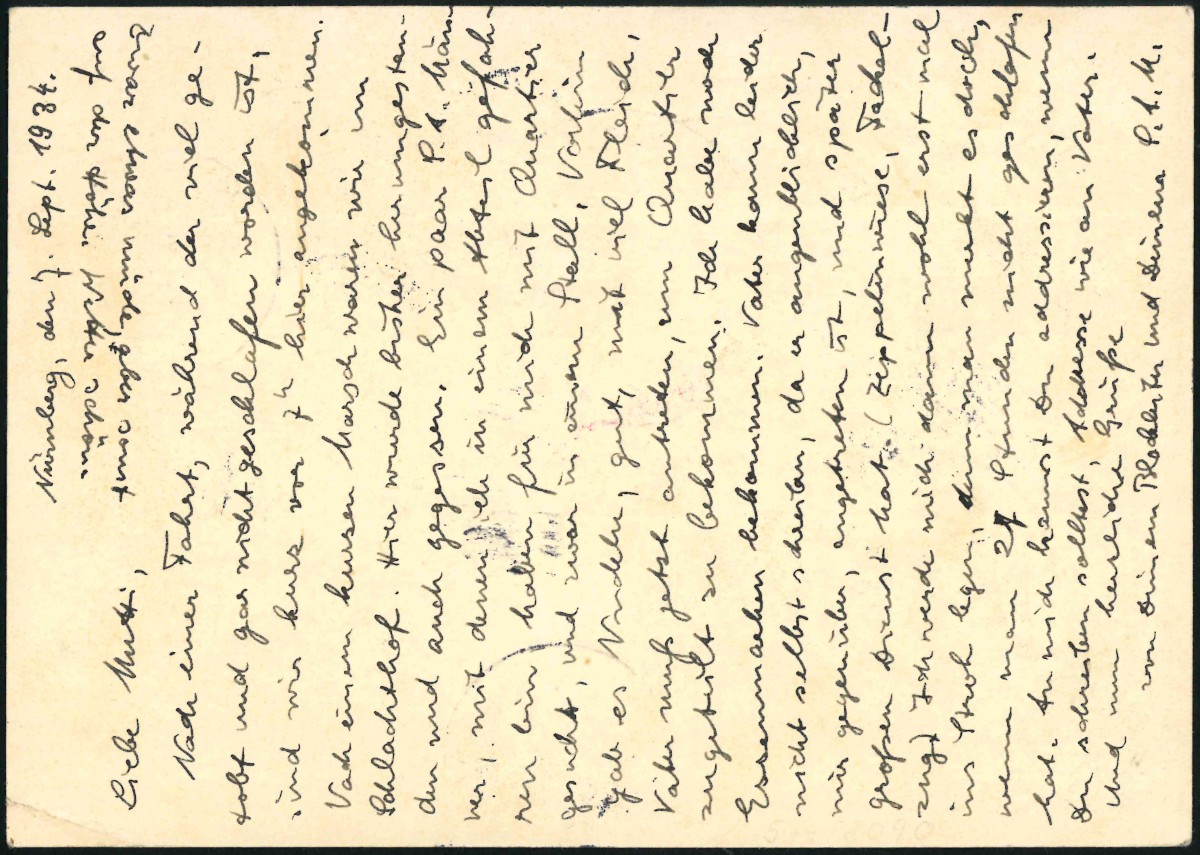 Nürnberg, den 7. Sept. 1934.
Liebe Mutti,
Nach einer Fahrt, während der viel ge-
tobt und gar nicht geschlafen worden ist,
sind wir kurz vor 7h hier angekommen.
Nach einem kurzen Marsch waren wir im
Schlachthof. Hier wurde bisher herumgestan-
den und auch gegessen. Ein paar P.L. Män-
ner, mit denen ich in einem Abteil gefah-
ren bin haben für mich mit Quartier
gesucht, und zwar in einem Stall, Vorhin
gab es Nudeln, gut, mit viel Fleisch,
Vater muß jetzt antreten, um Quartier
zugeteilt zu bekommen. Ich habe noch
Essmarken bekommen. Vater kann leider
nicht selbst schreiben, da er augenblicklich,
mir gegenüber, angetreten ist, und später
großen Dienst hat. (Zeppelinwiese, Fackel-
zug) Ich werde mich dann wohl erst mal
ins Stroh legen, denn man merkt es doch,
wenn man 24 Stunden nicht geschlafen
hat. An mich kannst Du addressieren, wenn
Du schreiben solltest, Addresse wie an Vater.
Und nun herzliche Grüße
von Deinem Blockleiter und Deinem P.L.M.
Zwar etwas müde, aber sonst
auf der Höhe! Wetter schön